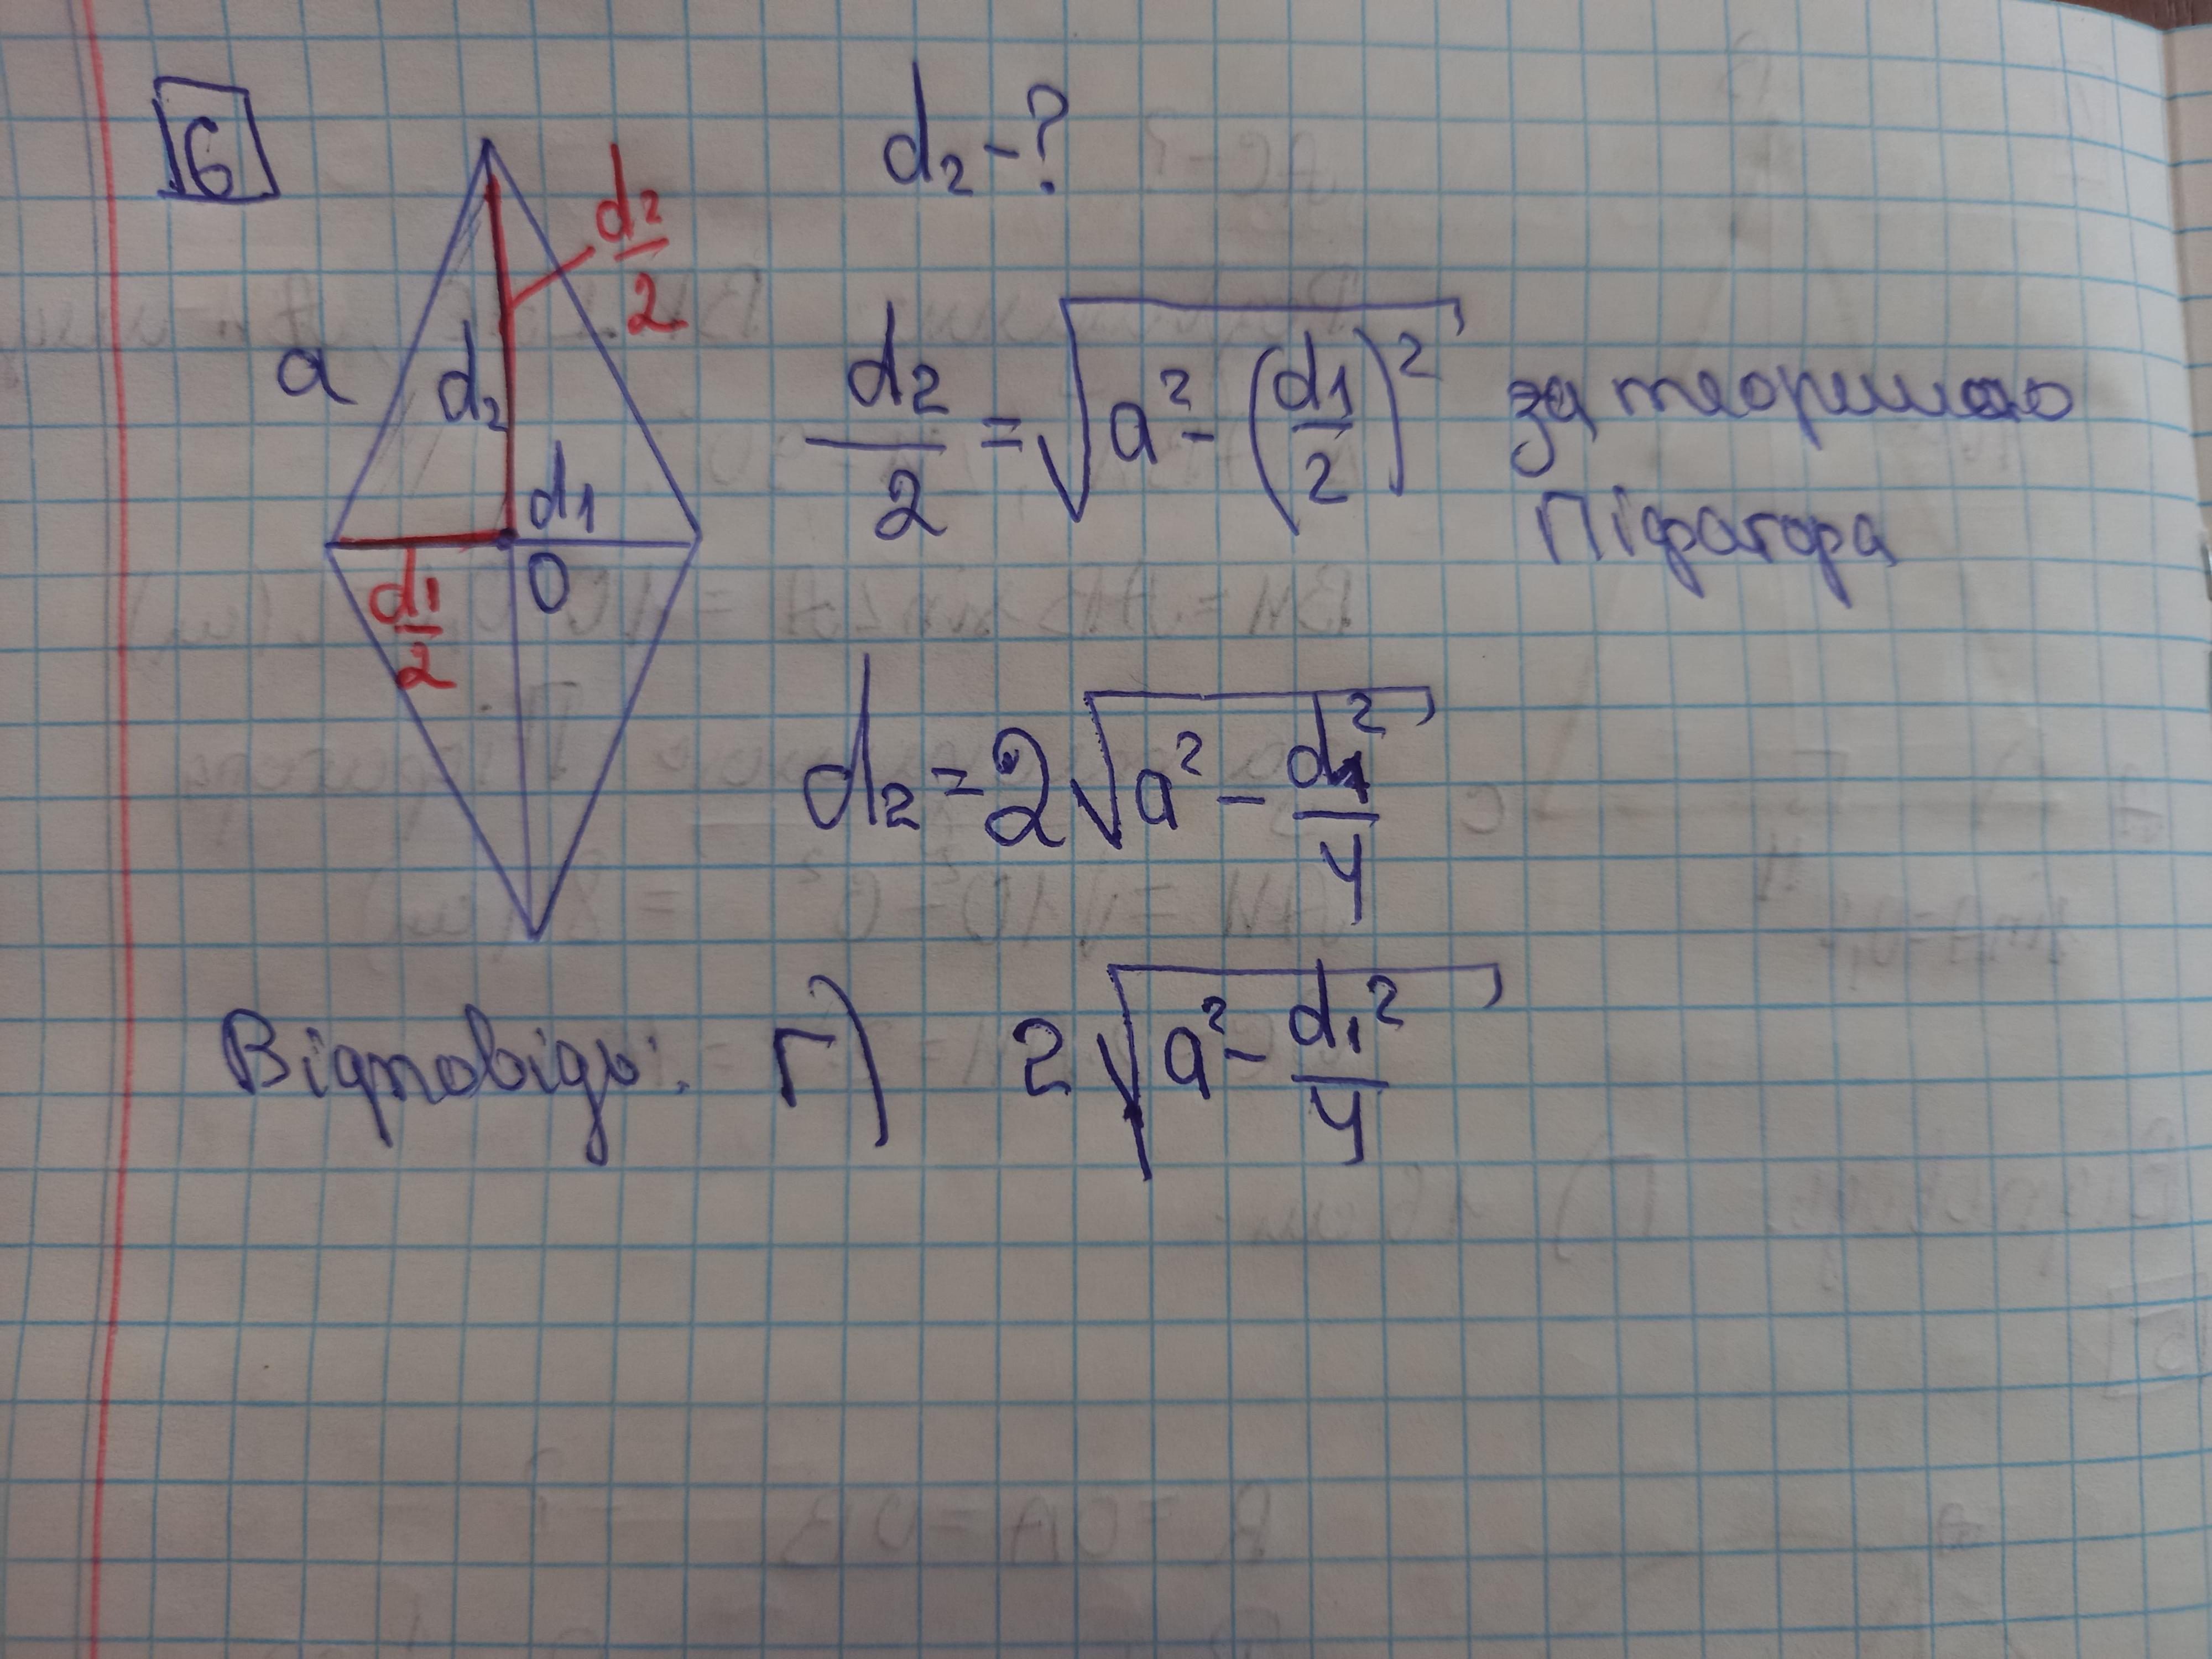 6
d₂ - ?
d₂/2
a
d₂
d₁
O
d₁/2
d₂/2 = √(a² - (d₁/2)²) за теоремою
Піфагора
d₂ = 2√(a² - d₁²/4)
Відповідь: Г) 2√(a² - d₁²/4)